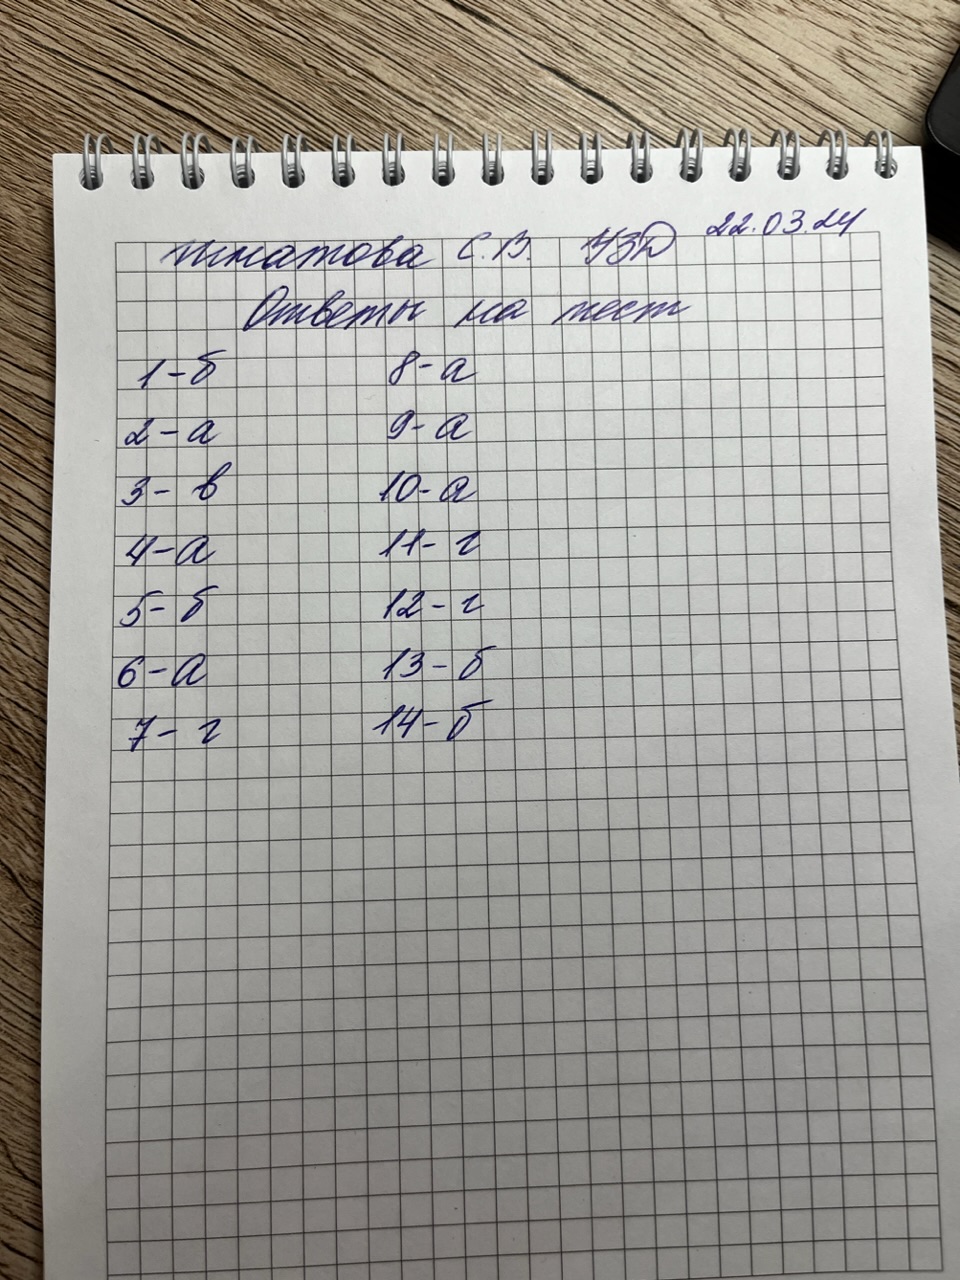 С.В. 43Д 22.03.24
Ответы на тест
1-б 8-а
2-а 9-а
3-в 10-а
4-а 11-г
5-б 12-г
6-а 13-б
7-г 14-б